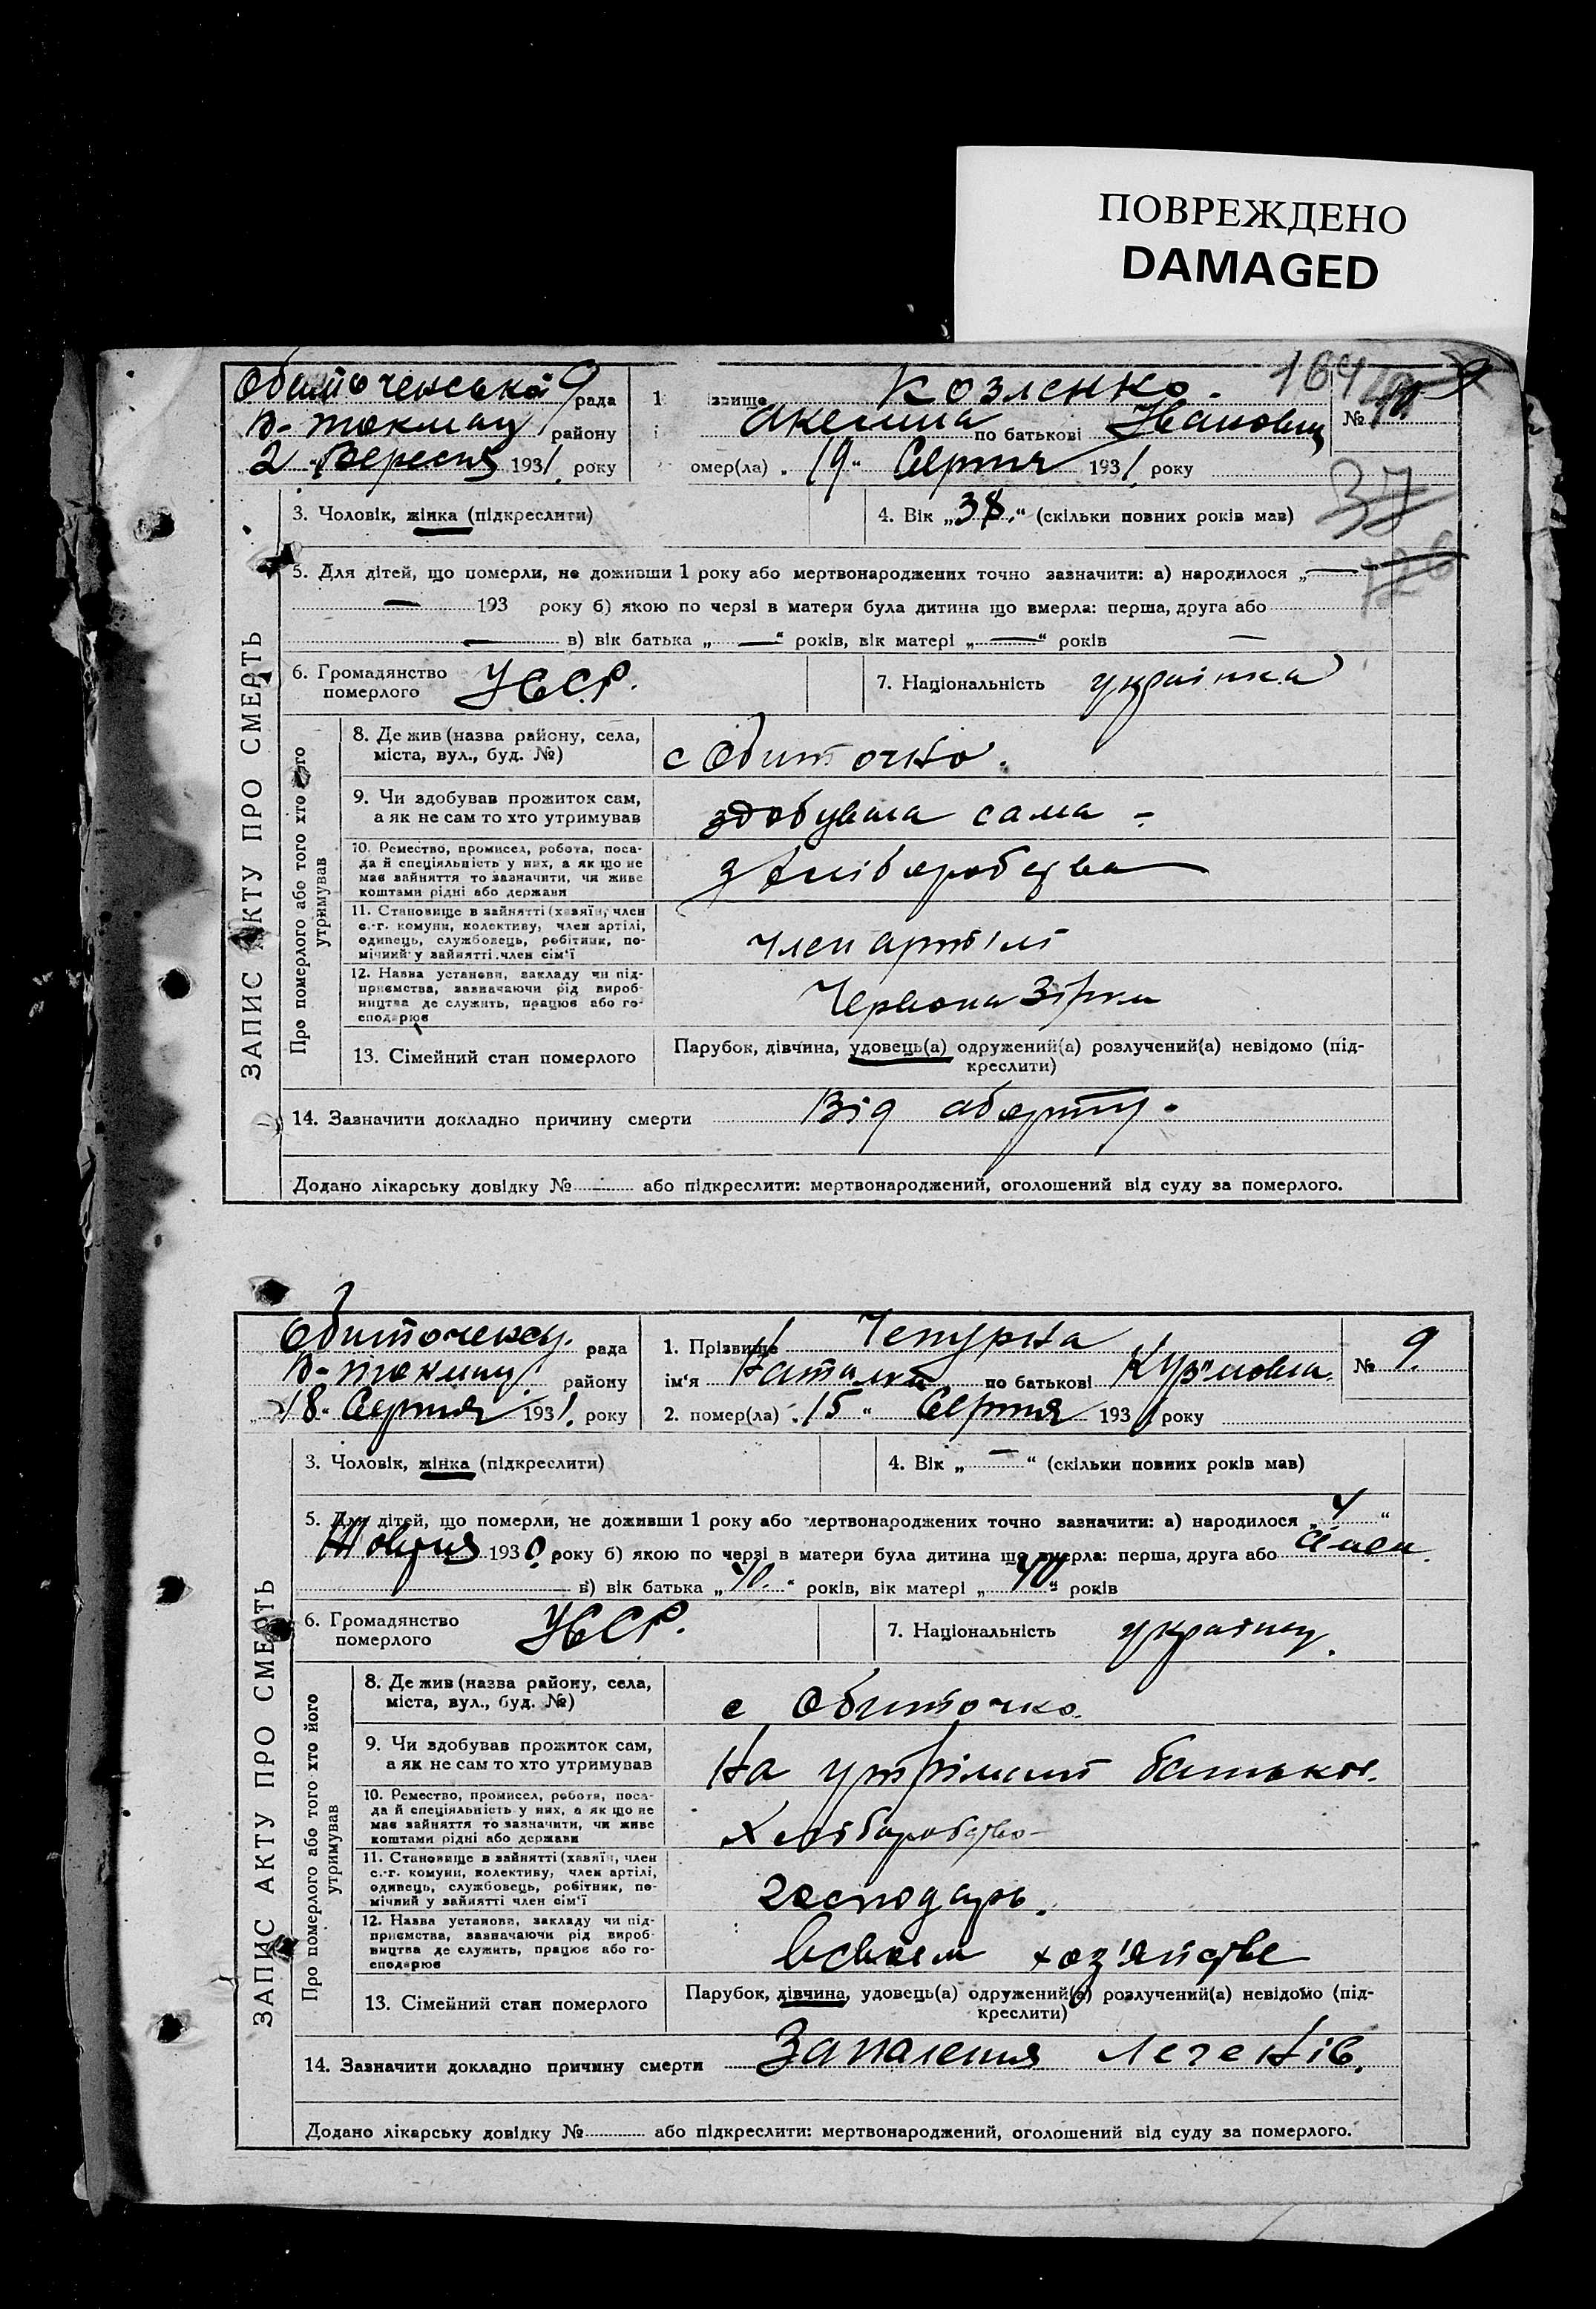 ПОВРЕЖДЕНО
DAMAGED
Обиточенська рада
В-Токмац району
2 Вересня 1931 року
1 звище Козленко 164
Акелина по батькові Івановна №
омер(ла) „19“ Серпня 1931 року
37
3. Чоловік, жінка (підкреслити)
4. Вік „38“ (скільки повних років мав)
5. Для дітей, що померли, не доживши 1 року або мертвонароджених точно зазначити: а) народилося „—
— 193 року б) якою по черзі в матери була дитина що вмерла: перша, друга або
— в) вік батька „—“ років, вік матері „—“ років —
6. Громадянство померлого УССР.
7. Національність українка
ЗАПИС АКТУ ПРО СМЕРТЬ
Про померлого або того хто його утримував
8. Де жив (назва району, села, міста, вул., буд. №)
с Обиточно.
9. Чи здобував прожиток сам, а як не сам то хто утримував
здобувала сама -
10. Ремество, промисел, робота, посада й спеціяльність у них, а як що не має зайняття то зазначити, чи живе коштами рідні або держави
з хліборобства
11. Становище в зайнятті (хазяїн, член с.-г. комуни, колективу, член артілі, одинець, службовець, робітник, помічний у зайнятті член сім'ї
член артілі
12. Назва установи, закладу чи підприємства, зазначаючи рід виробництва де служить, працює або господарює
Червона Зірка
13. Сімейний стан померлого
Парубок, дівчина, удовець(а) одружений(а) розлучений(а) невідомо (підкреслити)
14. Зазначити докладно причину смерти Від аборту.
Додано лікарську довідку № або підкреслити: мертвонароджений, оголошений від суду за померлого.
Обиточенск. рада
В-Токмац району
„18“ Серпня 1931. року
1. Прізвище Чепурна
ім'я Наталка по батькові Кузмовна № 9.
2. помер(ла) „15“ Серпня 1931 року
3. Чоловік, жінка (підкреслити)
4. Вік „—“ (скільки повних років мав)
5. Для дітей, що померли, не доживши 1 року або мертвонароджених точно зазначити: а) народилося „4“
Жовтня 1930. року б) якою по черзі в матери була дитина що вмерла: перша, друга або
в) вік батька „40.“ років, вік матері „40“ років
6. Громадянство померлого УССР.
7. Національність українц.
ЗАПИС АКТУ ПРО СМЕРТЬ
Про померлого або того хто його утримував
8. Де жив (назва району, села, міста, вул., буд. №)
с Обиточно.
9. Чи здобував прожиток сам, а як не сам то хто утримував
На утрімані батьков.
10. Ремество, промисел, робота, посада й спеціяльність у них, а як що не має зайняття то зазначити, чи живе коштами рідні або держави
Хліборобство
11. Становище в зайнятті (хазяїн, член с.-г. комуни, колективу, член артілі, одинець, службовець, робітник, помічний у зайнятті член сім'ї
господарь.
12. Назва установи, закладу чи підприємства, зазначаючи рід виробництва де служить, працює або господарює
в своем хоз'яйстве
13. Сімейний стан померлого
Парубок, дівчина, удовець(а) одружений(а) розлучений(а) невідомо (підкреслити)
14. Зазначити докладно причину смерти Запалення Легенів.
Додано лікарську довідку № або підкреслити: мертвонароджений, оголошений від суду за померлого.